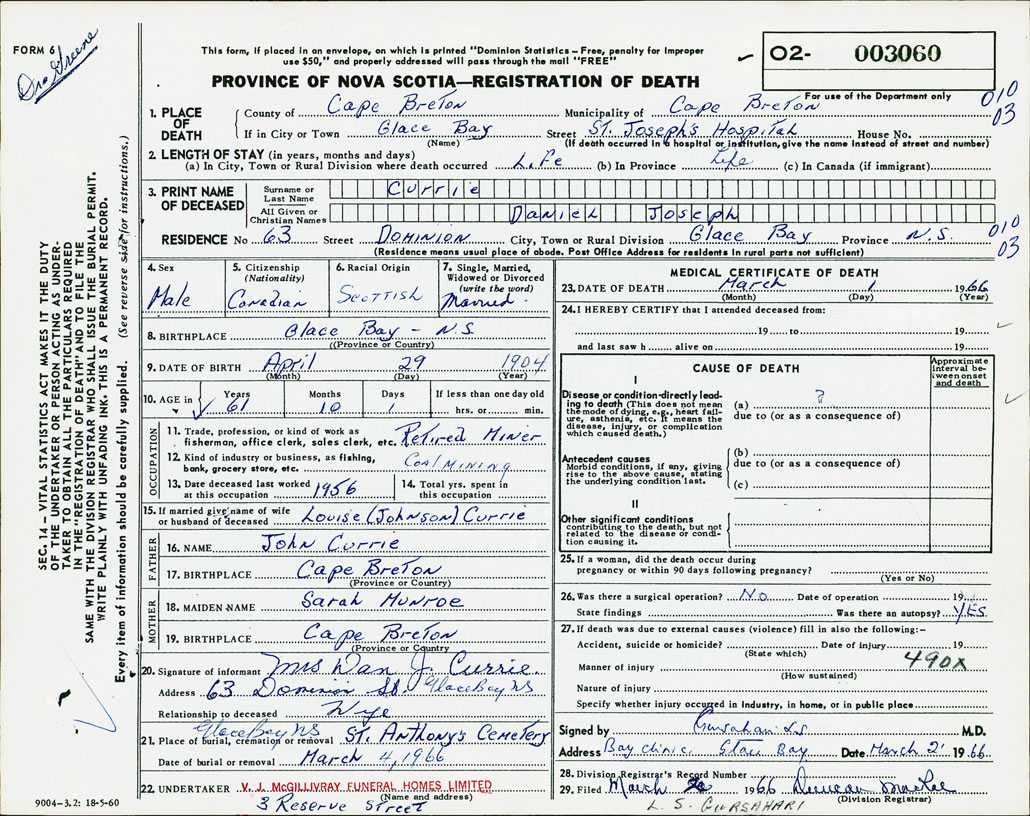 FORM 6
Drs Greene
This form, if placed in an envelope, on which is printed "Dominion Statistics – Free, penalty for improper
use $50," and properly addressed will pass through the mail "FREE"
PROVINCE OF NOVA SCOTIA—REGISTRATION OF DEATH
✓ O2- 003060
For use of the Department only
010
03
1. PLACE OF DEATH
County of Cape Breton Municipality of Cape Breton
If in City or Town Glace Bay Street St. Joseph's Hospital House No.
(Name) (If death occurred in a hospital or institution, give the name instead of street and number)
2. LENGTH OF STAY (in years, months and days)
(a) In City, Town or Rural Division where death occurred Life (b) In Province Life (c) In Canada (if immigrant)
3. PRINT NAME OF DECEASED
Surname or Last Name Currie
All Given or Christian Names Daniel Joseph
RESIDENCE No 63 Street Dominion City, Town or Rural Division Glace Bay Province N.S.
010
03
(Residence means usual place of abode. Post Office Address for residents in rural parts not sufficient)
4. Sex Male
5. Citizenship (Nationality) Canadian
6. Racial Origin Scottish
7. Single, Married, Widowed or Divorced (write the word) Married
8. BIRTHPLACE Glace Bay - N.S.
(Province or Country)
9. DATE OF BIRTH April 29 1904
(Month) (Day) (Year)
10. AGE in Years 61 Months 10 Days 1 If less than one day old hrs. or min.
OCCUPATION
11. Trade, profession, or kind of work as fisherman, office clerk, sales clerk, etc. Retired Miner
12. Kind of industry or business, as fishing, bank, grocery store, etc. Coal Mining
13. Date deceased last worked at this occupation 1956
14. Total yrs. spent in this occupation
15. If married give name of wife or husband of deceased Louise (Johnson) Currie
FATHER
16. NAME John Currie
17. BIRTHPLACE Cape Breton
(Province or Country)
MOTHER
18. MAIDEN NAME Sarah Munroe
19. BIRTHPLACE Cape Breton
(Province or Country)
20. Signature of informant Mrs Dan J. Currie
Address 63 Dominion St. Glace Bay NS
Relationship to deceased Wife
Glace Bay NS
21. Place of burial, cremation or removal St. Anthony's Cemetery
Date of burial or removal March 4, 1966
22. UNDERTAKER V. J. McGILLIVRAY FUNERAL HOMES LIMITED
(Name and address)
3 Reserve Street
9004-3.2: 18-5-60
MEDICAL CERTIFICATE OF DEATH
23. DATE OF DEATH March 1 1966
(Month) (Day) (Year)
24. I HEREBY CERTIFY that I attended deceased from:
19 to 19
and last saw h alive on 19
CAUSE OF DEATH
Approximate interval between onset and death
I
Disease or condition directly leading to death (This does not mean the mode of dying, e.g., heart failure, asthenia, etc. It means the disease, injury, or complication which caused death.)
(a) ?
due to (or as a consequence of)
Antecedent causes
Morbid conditions, if any, giving rise to the above cause, stating the underlying condition last.
(b)
due to (or as a consequence of)
(c)
II
Other significant conditions
contributing to the death, but not related to the disease or condition causing it.
25. If a woman, did the death occur during
pregnancy or within 90 days following pregnancy?
(Yes or No)
26. Was there a surgical operation? No Date of operation 19
State findings Was there an autopsy? YES
27. If death was due to external causes (violence) fill in also the following:-
Accident, suicide or homicide? Date of injury 19
(State which)
490X
Manner of injury
(How sustained)
Nature of injury
Specify whether injury occurred in industry, in home, or in public place
Signed by M.D.
Address Bay Clinic Glace Bay Date March 2 1966
28. Division Registrar's Record Number
29. Filed March 1966 Duncan MacRae
(Division Registrar)
L. S. GURSAHARI
SEC. 14 – VITAL STATISTICS ACT MAKES IT THE DUTY
OF THE UNDERTAKER OR PERSON ACTING AS UNDER-
TAKER TO OBTAIN ALL THE PARTICULARS REQUIRED
IN THE "REGISTRATION OF DEATH" AND TO FILE THE
SAME WITH THE DIVISION REGISTRAR WHO SHALL ISSUE THE BURIAL PERMIT.
WRITE PLAINLY WITH UNFADING INK. THIS IS A PERMANENT RECORD.
Every item of information should be carefully supplied. (See reverse side for instructions.)